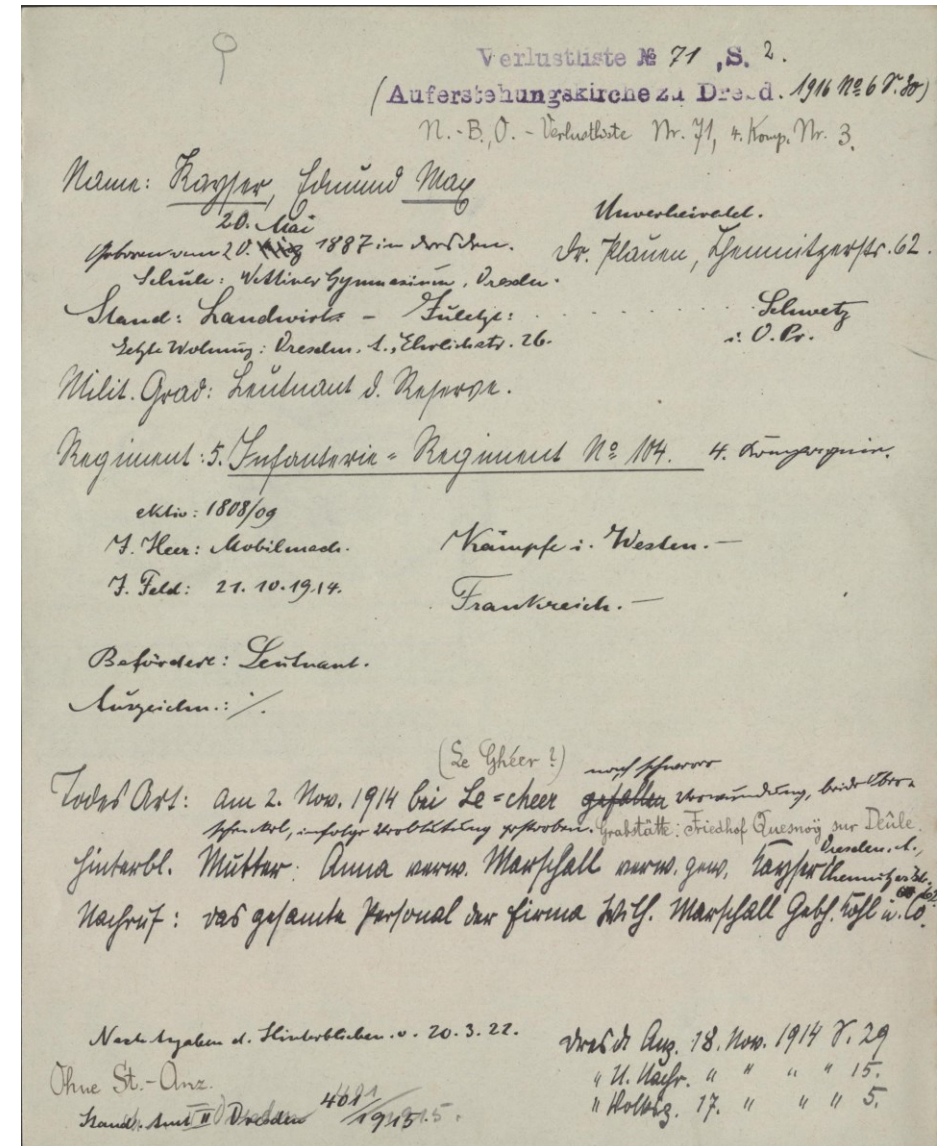 Verlustliste № 71, S. 2.
(Auferstehungskirche zu Dresd. 1916 No 6 S. 30)
N.-B., O.-Verlustliste Nr. 71, 4. Komp. Nr. 3.
Name: Kayser, Edmund Max
20. Mai
Unverheiratet.
Geboren am 20. 1887 in Dresden.
Dr. Plauen, Chemnitzerstr. 62.
Schule: Wettiner Gymnasium, Dresden.
Stand: Landwirt - Zuletzt: . . . . . . . . . Schwetz
i. O. Pr.
Letzte Wohnung: Dresden, A., Ehrlichstr. 26.
Milit. Grad: Leutnant d. Reserve.
Regiment: 5. Infanterie-Regiment No 104. 4. Kompagnie.
Aktiv: 1808/09
Z. Heer: Mobilmach. Kämpfe i. Westen. —
Z. Feld: 21.10.1914. Frankreich. —
Befördert: Leutnant.
Auszeichn.: ∙/.
(Le Ghéer?) nach schwerer
Todes Art: am 2. Nov. 1914 bei Le=cheer gefallen Verwundung, beide Ober=
schenkel, infolge Verblutung gestorben. Grabstätte: Friedhof Quesnoÿ sur Deûle.
Dresden, A.,
Hinterbl. Mutter: Anna verw. Marschall verw. gew. Kayser Chemnitzerstr.
62.
Nachruf: das gesamte Personal der Firma Wilh. Marschall Gebh. Kohl u. Co.
Nach Angaben d. Hinterblieben. v. 20.3.22.
Ohne St.-Anz.
Stand. Amt II Dresden 4691/1915.
Dresd. Anz. 18. Nov. 1914 S. 29
" N. Nachr. " " " " 15.
" Volksz. 17. " " " 5.